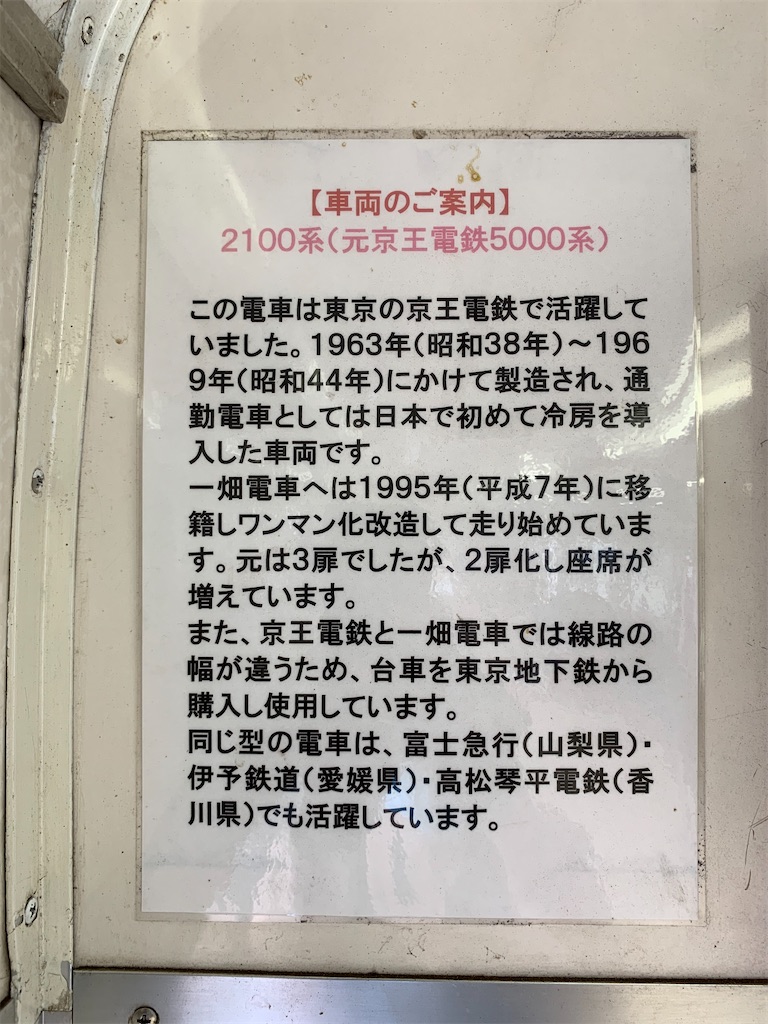 【車両のご案内】
2100系(元京王電鉄5000系)
この電車は東京の京王電鉄で活躍して
いました。1963年(昭和38年)～196
9年(昭和44年)にかけて製造され、通
勤電車としては日本で初めて冷房を導
入した車両です。
一畑電車へは1995年(平成7年)に移
籍しワンマン化改造して走り始めていま
す。元は3扉でしたが、2扉化し座席が
増えています。
また、京王電鉄と一畑電車では線路の
幅が違うため、台車を東京地下鉄から
購入し使用しています。
同じ型の電車は、富士急行(山梨県)・
伊予鉄道(愛媛県)・高松琴平電鉄(香
川県)でも活躍しています。